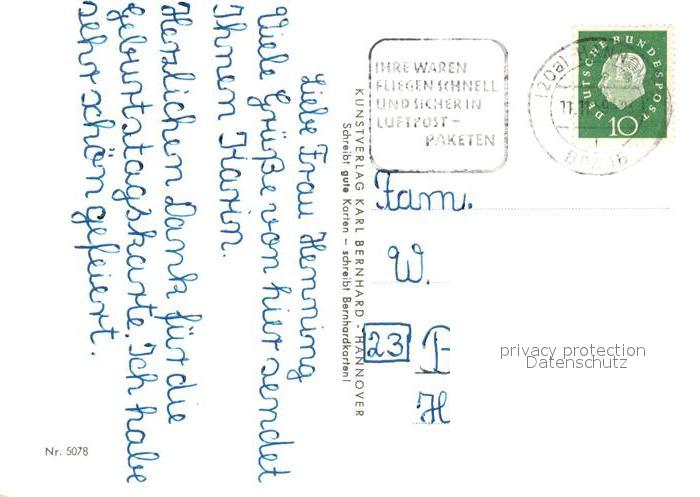 Liebe Frau Henning
Viele Grüße von hier sendet
Ihnen Karin.
Herzlichen Dank für die
Geburtstagskarte. Ich habe
sehr schön gefeiert.
Nr. 5078
KUNSTVERLAG KARL BERNHARD - HANNOVER
Schreibt gute Karten – schreibt Bernhardkarten!
IHRE WAREN
FLIEGEN SCHNELL
UND SICHER IN
LUFTPOST-
PAKETEN
(20a)
11.11.
DEUTSCHE BUNDESPOST
10
Fam.
W.
23
H
privacy protection
Datenschutz